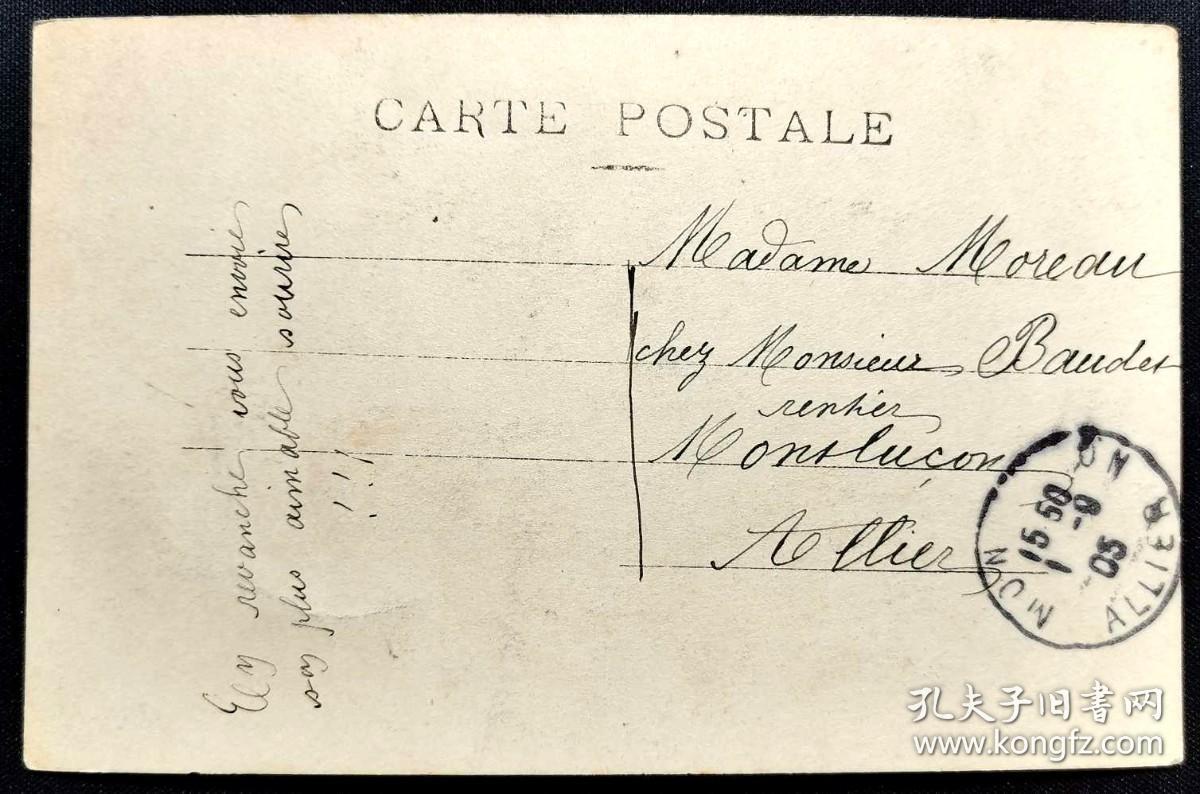 CARTE POSTALE
Madame Moreau
chez Monsieur Baudet
rentier
Montluçon
Allier
revanche vous envoie
son plus aimable sourire
!!!
15 50
1 -9
05
ALLIER
孔夫子旧书网
www.kongfz.com